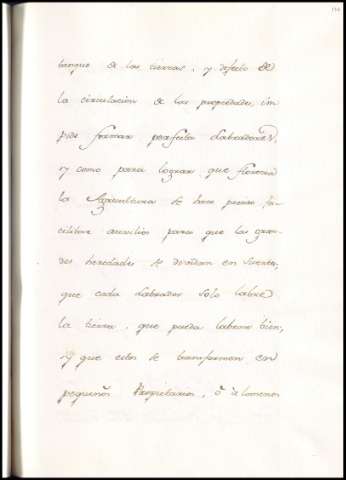 tanque de las tierras, y defecto de
la circulacion de las propiedades, im
pide formar perfectos Labradores,
y como para lograr que florezca
la Agricultura se hace preciso fa-
cilitar auxilios para que las gran-
des heredades se dividan en suertes,
que cada Labrador solo labre
la tierra, que pueda labrar bien,
y que estos se transformen en
pequeños Propietarios, ó à lo menos